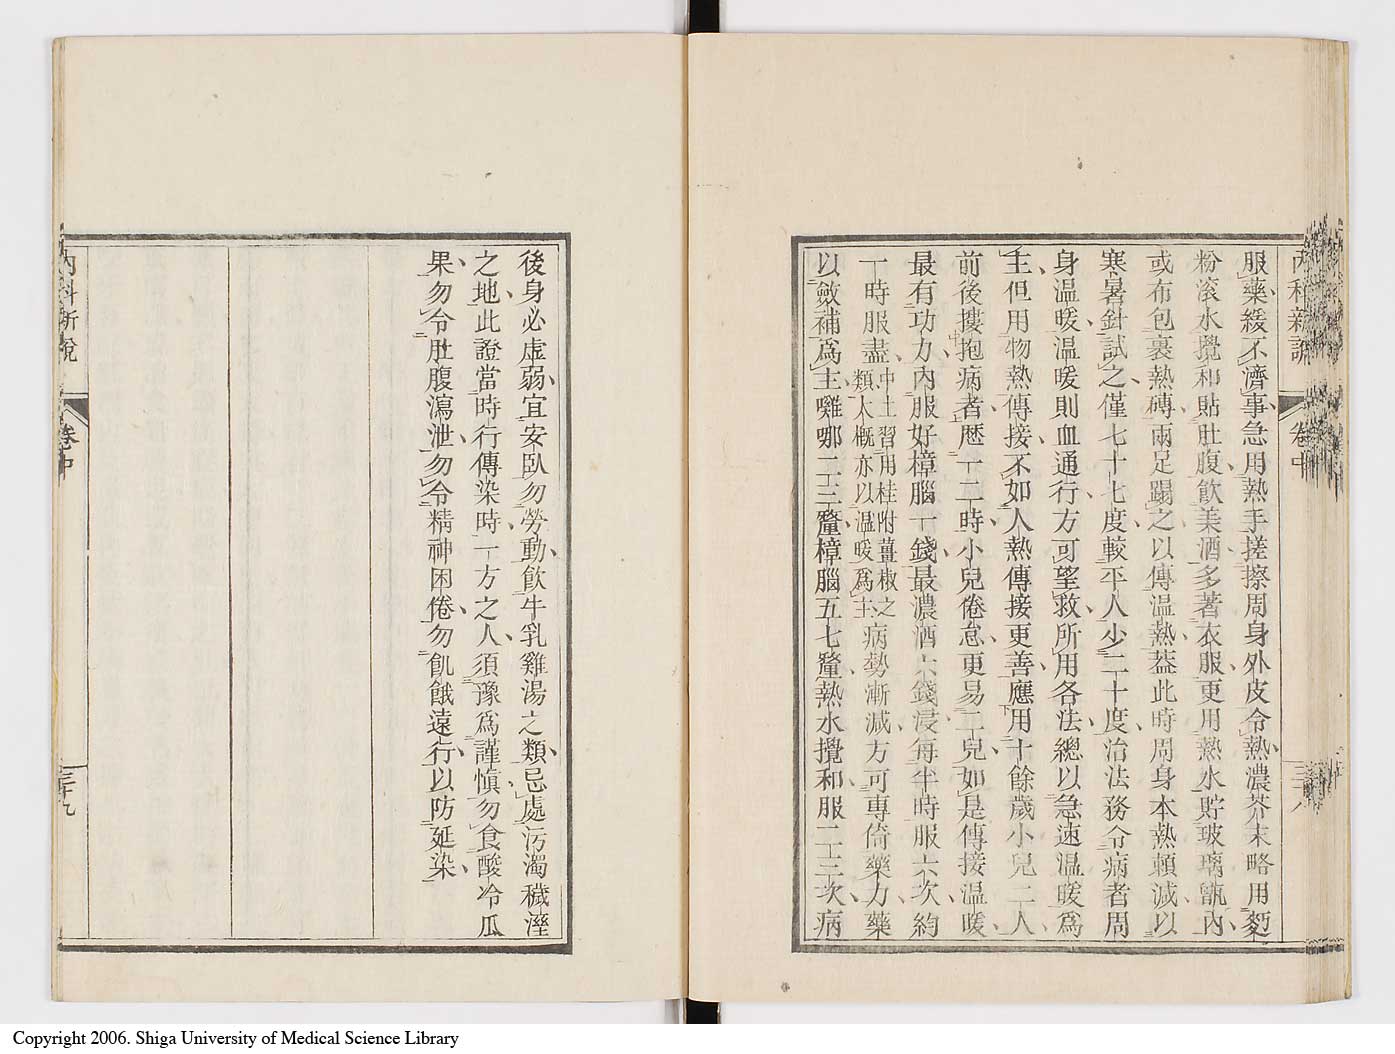 內科新說
卷中
三十八
服藥緩不濟事急用熱手搓擦周身外皮令熱濃芥末略用麪
粉滚水攪和貼肚腹飮美酒多著衣服更用熱水貯玻璃甁內
或布包裹熱磚兩足蹋之以傳温熱葢此時周身本熱頼減以
寒暑針試之僅七十七度較平人少二十度治法務令病者周
身温暖温暖則血通行方可望救所用各法總以急速温暖爲
主但用物熱傳接不如人熱傳接更善應用十餘歲小兒二人
前後摟抱病者歷一二時小兒倦怠更易二兒如是傳接温暖
最有功力內服好樟腦一錢最濃酒六錢浸每半時服六次約
一時服盡中土習用桂附薑椒之類大槪亦以温暖爲主病勢漸減方可專倚藥力藥
以斂補爲主囉哪二三釐樟腦五七釐熱水攪和服二三次病
後身必虛弱宜安臥勿勞動飮牛乳雞湯之類忌處污濁穢溼
之地此證當時行傳染時一方之人須豫爲謹愼勿食酸冷瓜
果勿令肚腹瀉泄勿令精神困倦勿飢餓遠行以防延染
內科新說
卷中
三十九
Copyright 2006. Shiga University of Medical Science Library